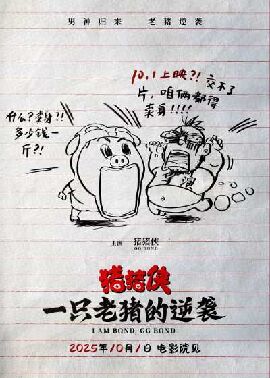 男神归来 老猪逆袭
10.1上映?!交不了
片,咱俩都得
卖身!!!!
什么?卖身!!
多少钱一
斤?!
主演 猪猪侠
GG BOND
猪猪侠
一只老猪的逆袭
I AM BOND, GG BOND
2025年10月1日 电影院见